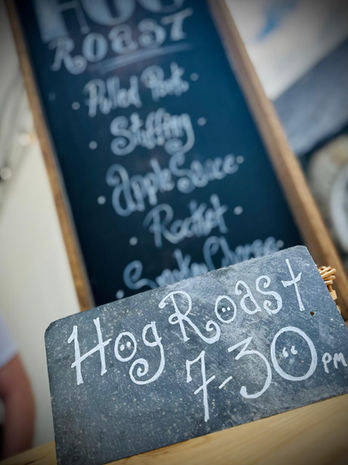 Hog
Roast
• Pulled Pork •
• Stuffing •
• Apple Sauce •
• Rocket •
• Smoky Cheese
Hog Roast
7-30 pm